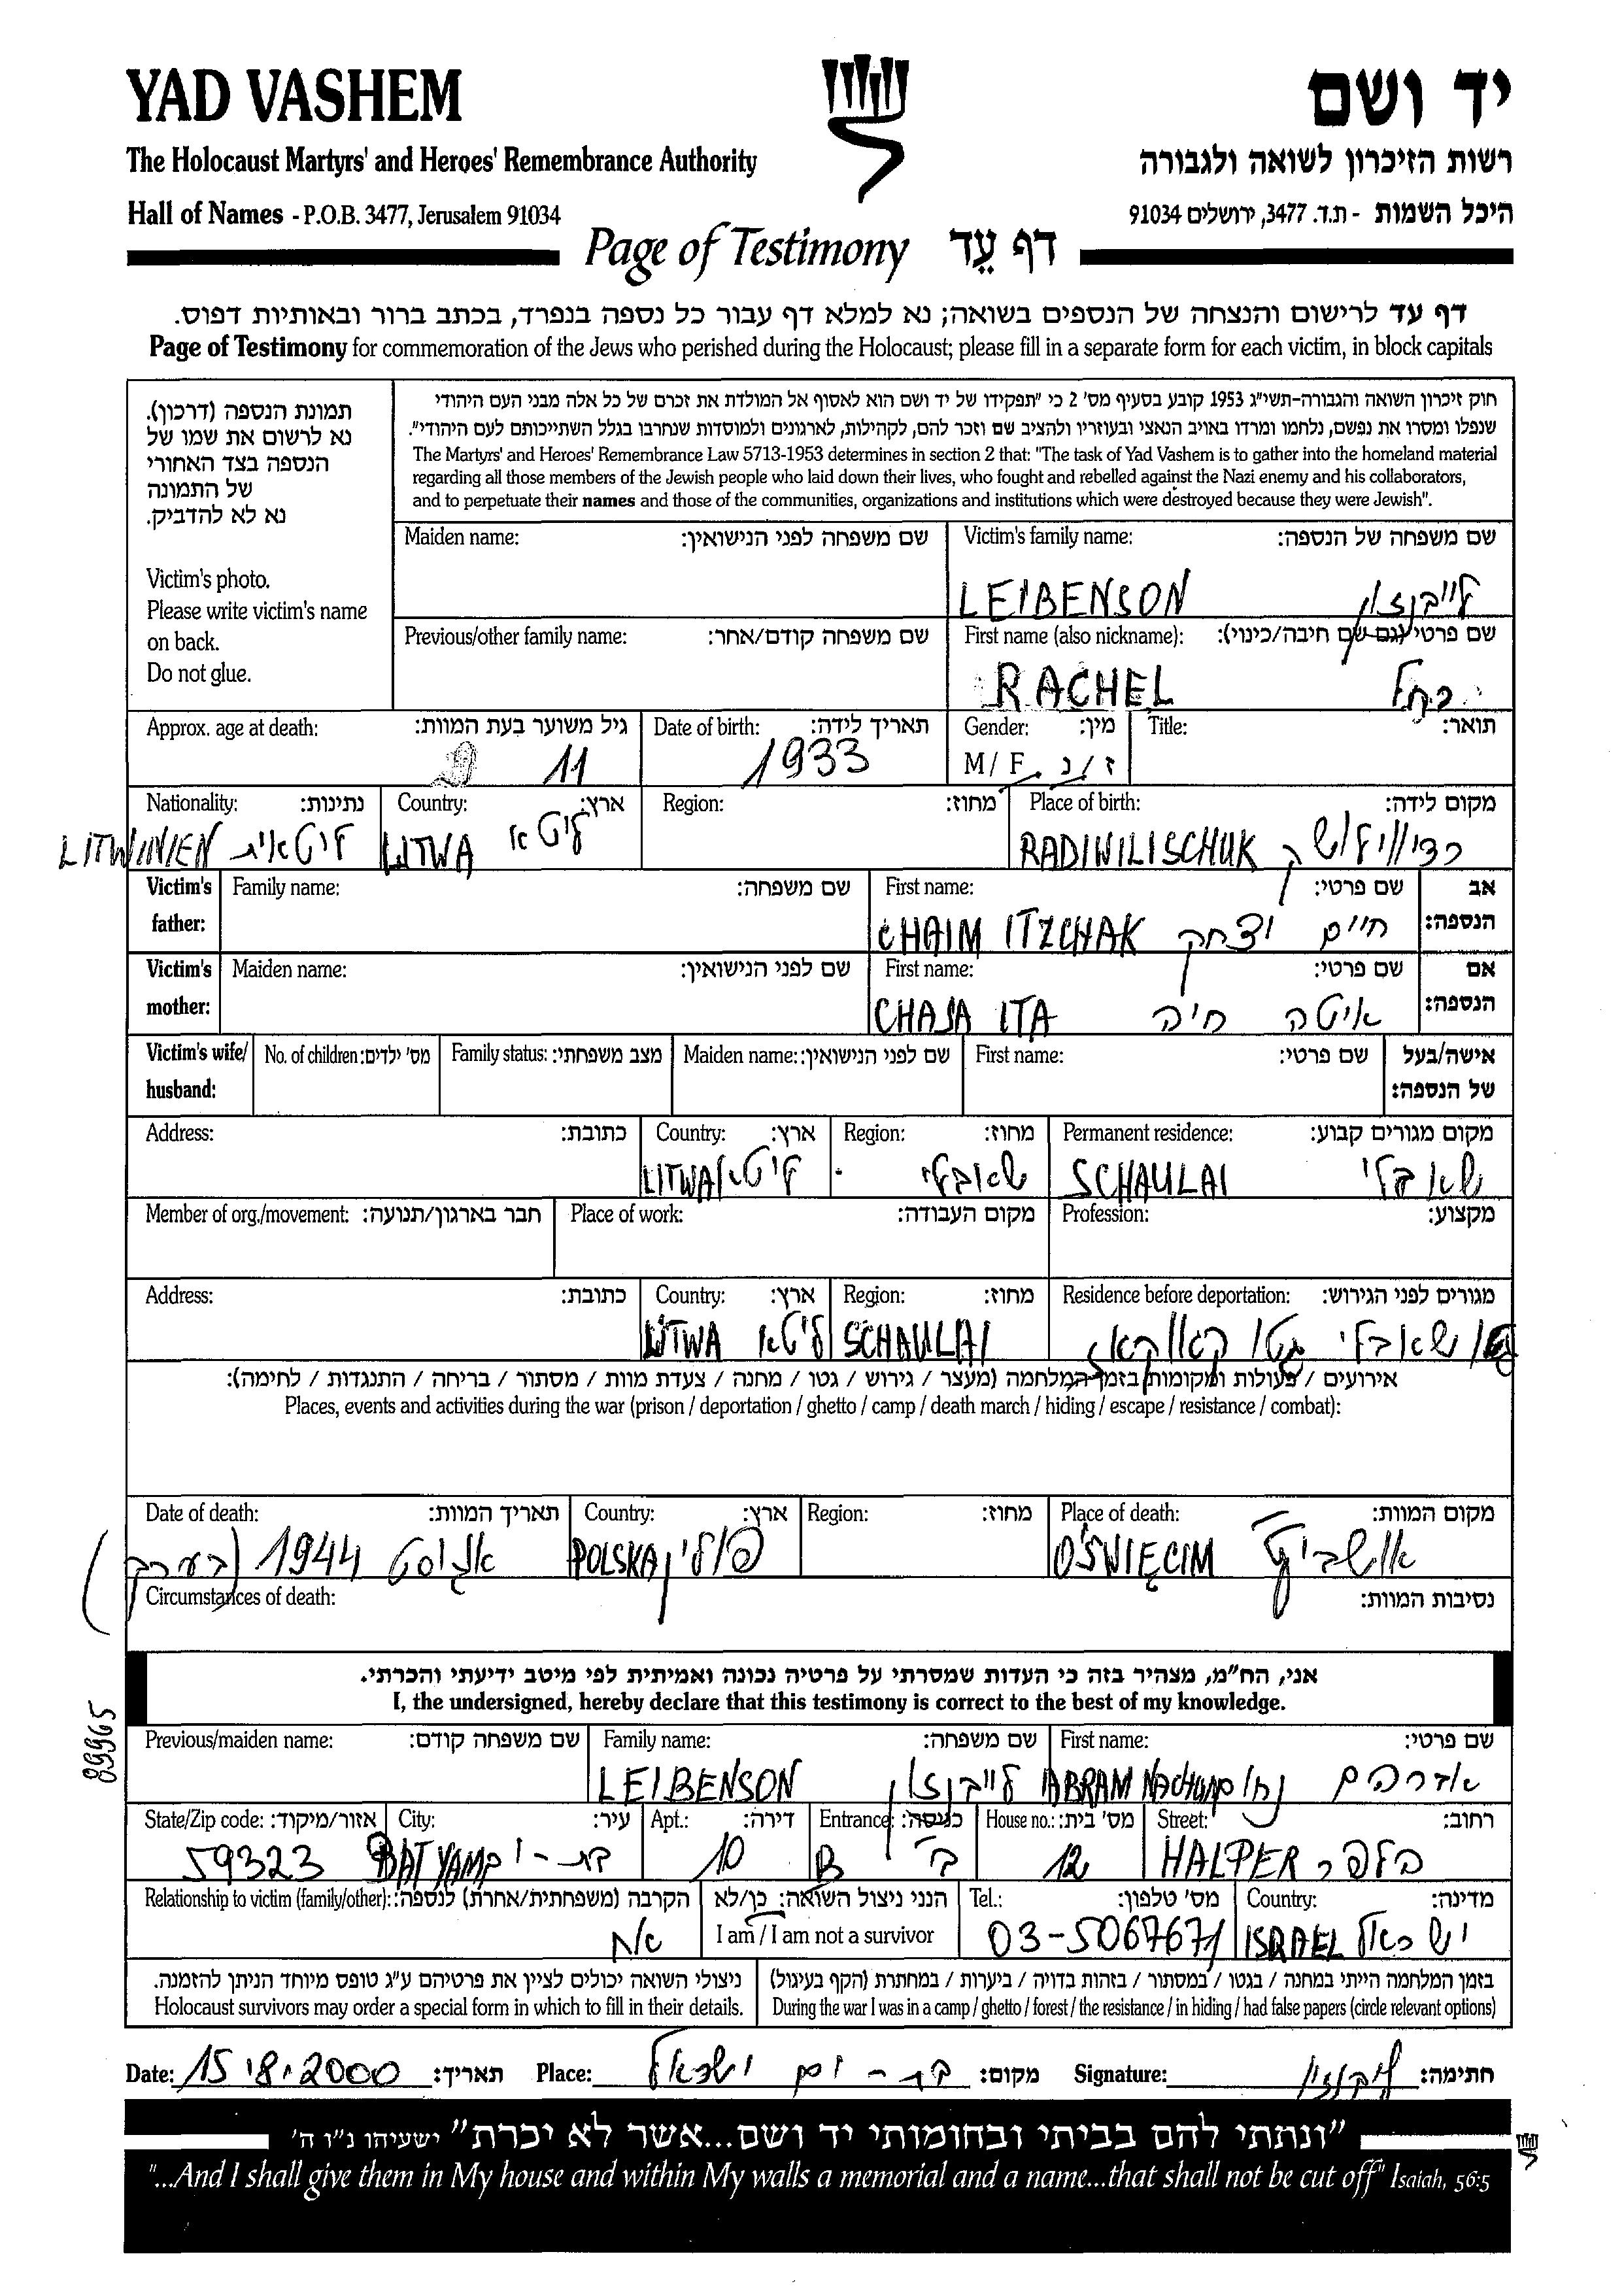 YAD VASHEM
יד ושם
The Holocaust Martyrs' and Heroes' Remembrance Authority
רשות הזיכרון לשואה ולגבורה
Hall of Names - P.O.B. 3477, Jerusalem 91034
היכל השמות - ת.ד. 3477, ירושלים 91034
Page of Testimony דף עֵד
דף עד לרישום והנצחה של הנספים בשואה; נא למלא דף עבור כל נספה בנפרד, בכתב ברור ובאותיות דפוס.
Page of Testimony for commemoration of the Jews who perished during the Holocaust; please fill in a separate form for each victim, in block capitals
תמונת הנספה (דרכון).
נא לרשום את שמו של
הנספה בצד האחורי
של התמונה
נא לא להדביק.
Victim's photo.
Please write victim's name
on back.
Do not glue.
חוק זיכרון השואה והגבורה-תשי"ג 1953 קובע בסעיף מס' 2 כי "תפקידו של יד ושם הוא לאסוף אל המולדת את זכרם של כל אלה מבני העם היהודי
שנפלו ומסרו את נפשם, נלחמו ומרדו באויב הנאצי ובעוזריו ולהציב שם וזכר להם, לקהילות, לארגונים ולמוסדות שנחרבו בגלל השתייכותם לעם היהודי".
The Martyrs' and Heroes' Remembrance Law 5713-1953 determines in section 2 that: "The task of Yad Vashem is to gather into the homeland material
regarding all those members of the Jewish people who laid down their lives, who fought and rebelled against the Nazi enemy and his collaborators,
and to perpetuate their names and those of the communities, organizations and institutions which were destroyed because they were Jewish".
Maiden name: שם משפחה לפני הנישואין:
Victim's family name: שם משפחה של הנספה:
LEIBENSON לייבנזון
Previous/other family name: שם משפחה קודם/אחר:
First name (also nickname): שם פרטי (גם שם חיבה/כינוי):
RACHEL רחל
Approx. age at death: גיל משוער בעת המוות:
11
Date of birth: תאריך לידה:
1933
Gender: מין:
M / F ז / נ
Title: תואר:
Nationality: נתינות:
LITWINIEN ליטאית
Country: ארץ:
LITWA ליטא
Region: מחוז:
Place of birth: מקום לידה:
RADIWILISCHUK רדיווילישוק
Victim's father: Family name: שם משפחה:
First name: שם פרטי: אב הנספה:
CHAIM ITZCHAK חיים יצחק
Victim's mother: Maiden name: שם לפני הנישואין:
First name: שם פרטי: אם הנספה:
CHAJA ITA איטה חיה
Victim's wife/ husband: No. of children: מס' ילדים: Family status: מצב משפחתי: Maiden name: שם לפני הנישואין: First name: שם פרטי: אישה/בעל של הנספה:
Address: כתובת:
Country: ארץ:
LITWA ליטא
Region: מחוז:
שאבלי
Permanent residence: מקום מגורים קבוע:
SCHAULAI שאבלי
Member of org./movement: חבר בארגון/תנועה: Place of work: מקום העבודה: Profession: מקצוע:
Address: כתובת:
Country: ארץ:
LITWA ליטא
Region: מחוז:
SCHAULAI
Residence before deportation: מגורים לפני הגירוש:
שאבלי גטו קאוקאז
אירועים / פעולות ומקומות בזמן המלחמה (מעצר / גירוש / גטו / מחנה / צעדת מוות / מסתור / בריחה / התנגדות / לחימה):
Places, events and activities during the war (prison / deportation / ghetto / camp / death march / hiding / escape / resistance / combat):
Date of death: תאריך המוות:
אוגוסט 1944 (בערך)
Country: ארץ:
POLSKA פולין
Region: מחוז:
Place of death: מקום המוות:
OŚWIĘCIM אושביץ
Circumstances of death: נסיבות המוות:
אני, הח"מ, מצהיר בזה כי העדות שמסרתי על פרטיה נכונה ואמיתית לפי מיטב ידיעתי והכרתי.
I, the undersigned, hereby declare that this testimony is correct to the best of my knowledge.
89965
Previous/maiden name: שם משפחה קודם:
Family name: שם משפחה:
LEIBENSON לייבנזון
First name: שם פרטי:
ABRAM NACHUM אברהם נחום
State/Zip code: אזור/מיקוד:
59323
City: עיר:
BAT YAM בת-ים
Apt.: דירה:
10
Entrance: כניסה:
B ב'
House no.: מס' בית:
12
Street: רחוב:
HALPER הלפר
Relationship to victim (family/other): הקרבה (משפחתית/אחרת) לנספה:
אח
הנני ניצול השואה: כן/לא
I am / I am not a survivor
Tel.: מס' טלפון:
03-5067671
Country: מדינה:
ISRAEL ישראל
ניצולי השואה יכולים לציין את פרטיהם ע"ג טופס מיוחד הניתן להזמנה.
Holocaust survivors may order a special form in which to fill in their details.
בזמן המלחמה הייתי במחנה / בגטו / במסתור / בזהות בדויה / ביערות / במחתרת (הקף בעיגול)
During the war I was in a camp / ghetto / forest / the resistance / in hiding / had false papers (circle relevant options)
Date: 15.8.2000 תאריך: Place: בת-ים ישראל מקום: Signature: לייבנזון חתימה:
"ונתתי להם בביתי ובחומותי יד ושם...אשר לא יכרת" ישעיהו נ"ו ה'
"...And I shall give them in My house and within My walls a memorial and a name...that shall not be cut off" Isaiah, 56:5